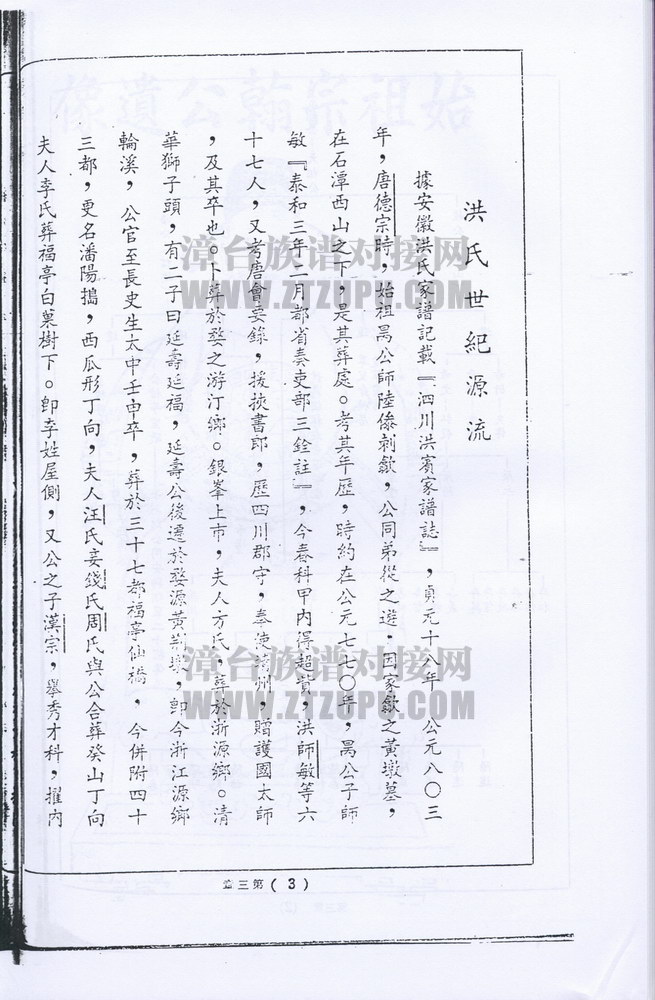 洪氏世紀源流
據安徽洪氏家譜記載『泗川洪賓家譜誌』，貞元十八年 公元八〇三
年，唐德宗時，始祖晑公師陸傪刺歙，公同弟從之遊．因家歙之黃墩墓，
在石潭西山之下，是其葬處。考其年歷，時約在公元七七〇年，晑公子師
敏『泰和三年二月都省奏吏部三銓註』，今春科甲內得超資，洪師敏等六
十七人，又考唐會要錄，援挾書郎，歷四川郡守，奉使 州，贈護國太師
，及其卒也。卜葬於婺之游汀鄉。銀峯上市，夫人方氏，葬於浙源鄉。清
華獅子頭，有二子曰延壽延福，延壽公後遷於婺源黃荆墩，卽今浙江源鄉
輪溪，公官至長史生太中壬申卒，葬於三十七都福亭仙橋，今併附四十
三都，更名潘陽塢，西瓜形丁向，夫人汪氏妾錢氏周氏與公合葬癸山丁向
夫人李氏葬福亭白菓樹下。卽李姓屋側，又公之子漢宗，舉秀才科，擢內
章三第(3)
始祖宗翰公遺像
漳台族谱对接网
WWW.ZTZUPU.COM
漳台族谱对接网
WWW.ZTZUPU.COM